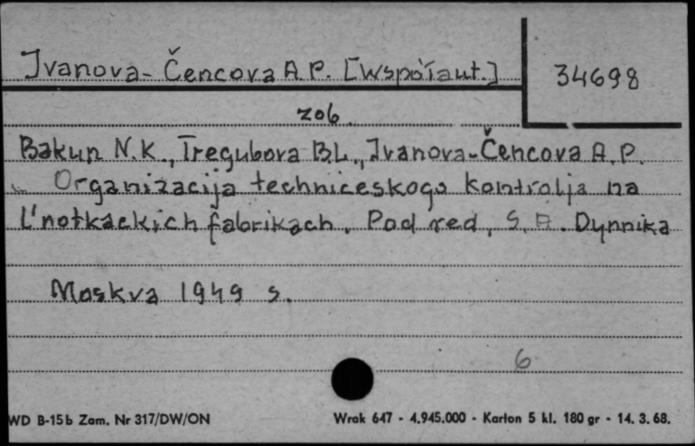 Ivanova-Čencova A.P. [Współaut.]
34698
zob.
Bakun N.K., Tregubova B.L., Ivanova-Čencova A.P.
Organizacija techniceskogo kontrolja na
l'notkackich fabrikach. Pod red. S. A. Dynnika
Moskva 1949 s.
6
WD B-15b Zam. Nr 317/DW/ON
Wrak 647 - 4.945.000 - Karton 5 kl. 180 gr - 14. 3. 68.